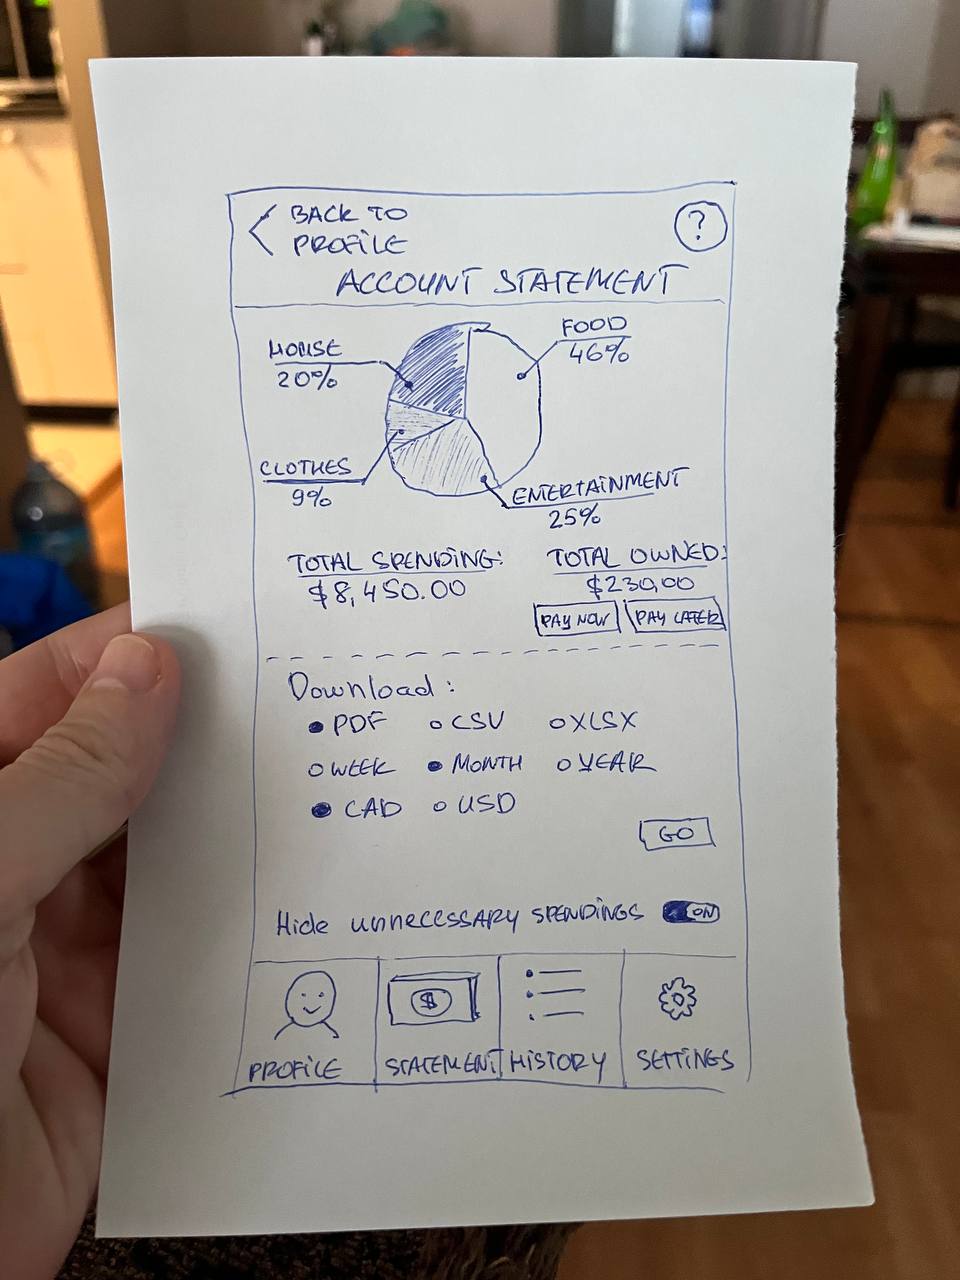 BACK TO
PROFILE
?
ACCOUNT STATEMENT
HOUSE
20%
FOOD
46%
CLOTHES
9%
ENTERTAINMENT
25%
TOTAL SPENDING:
$8,450.00
TOTAL OWNED:
$230,00
PAY NOW
PAY LATER
Download:
PDF CSV XLSX
WEEK MONTH YEAR
CAD USD
GO
Hide unnecessary spendings ON
$
PROFILE STATEMENT HISTORY SETTINGS